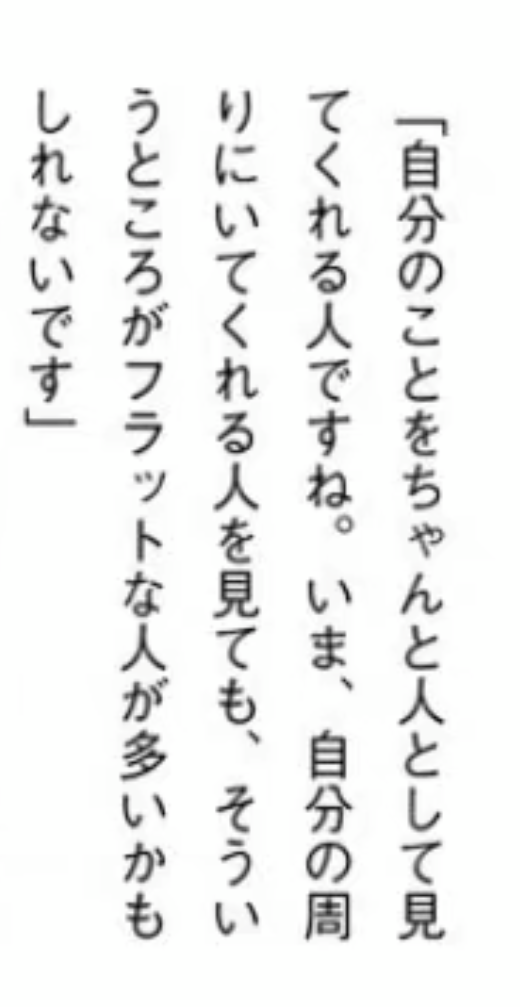 「自分のことをちゃんと人として見
てくれる人ですね。いま、自分の周
りにいてくれる人を見ても、そうい
うところがフラットな人が多いかも
しれないです」